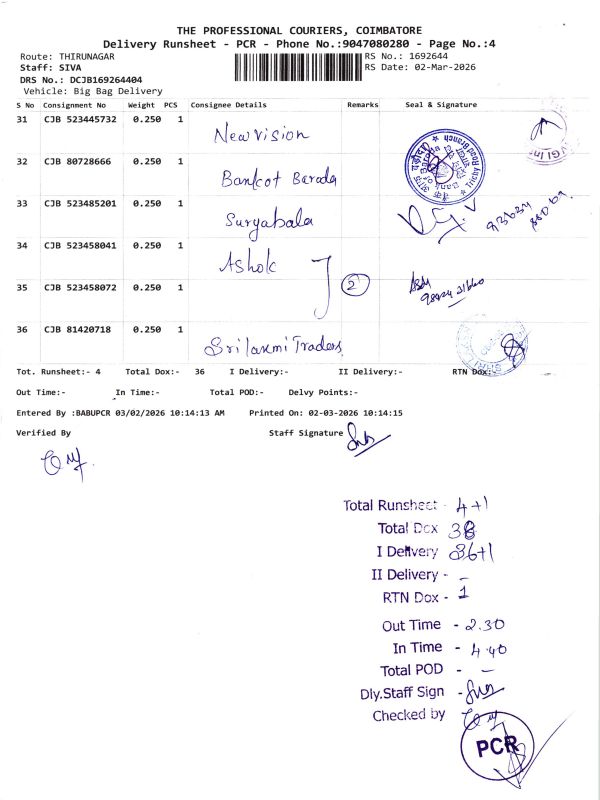 THE PROFESSIONAL COURIERS, COIMBATORE
Delivery Runsheet - PCR - Phone No.:9047080280 - Page No.:4
Route: THIRUNAGAR RS No.: 1692644
Staff: SIVA RS Date: 02-Mar-2026
DRS No.: DCJB169264404
Vehicle: Big Bag Delivery
S No Consignment No Weight PCS Consignee Details Remarks Seal & Signature
31 CJB 523445732 0.250 1 New vision
32 CJB 80728666 0.250 1 Bankot Barada
33 CJB 523485201 0.250 1 Suryabala
34 CJB 523458041 0.250 1 Ashok
35 CJB 523458072 0.250 1 2
36 CJB 81420718 0.250 1 Srilaxmi Traders
Tot. Runsheet:- 4 Total Dox:- 36 I Delivery:- II Delivery:- RTN Dox:-
Out Time:- In Time:- Total POD:- Delvy Points:-
Entered By :BABUPCR 03/02/2026 10:14:13 AM Printed On: 02-03-2026 10:14:15
Verified By Staff Signature
Total Runsheet - 4+1
Total Dox 38
I Delivery 36+1
II Delivery - -
RTN Dox - 1
Out Time - 2.30
In Time - 4.40
Total POD - -
Dly.Staff Sign -
Checked by
PCR